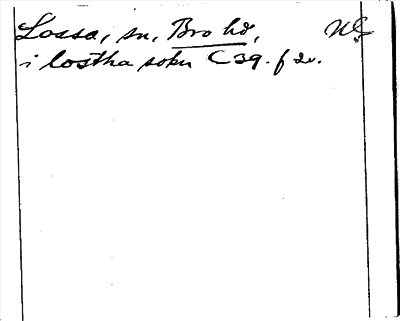 Lossa, sn, Bro hd, UG
i lostha sokn C 39. f 2v.